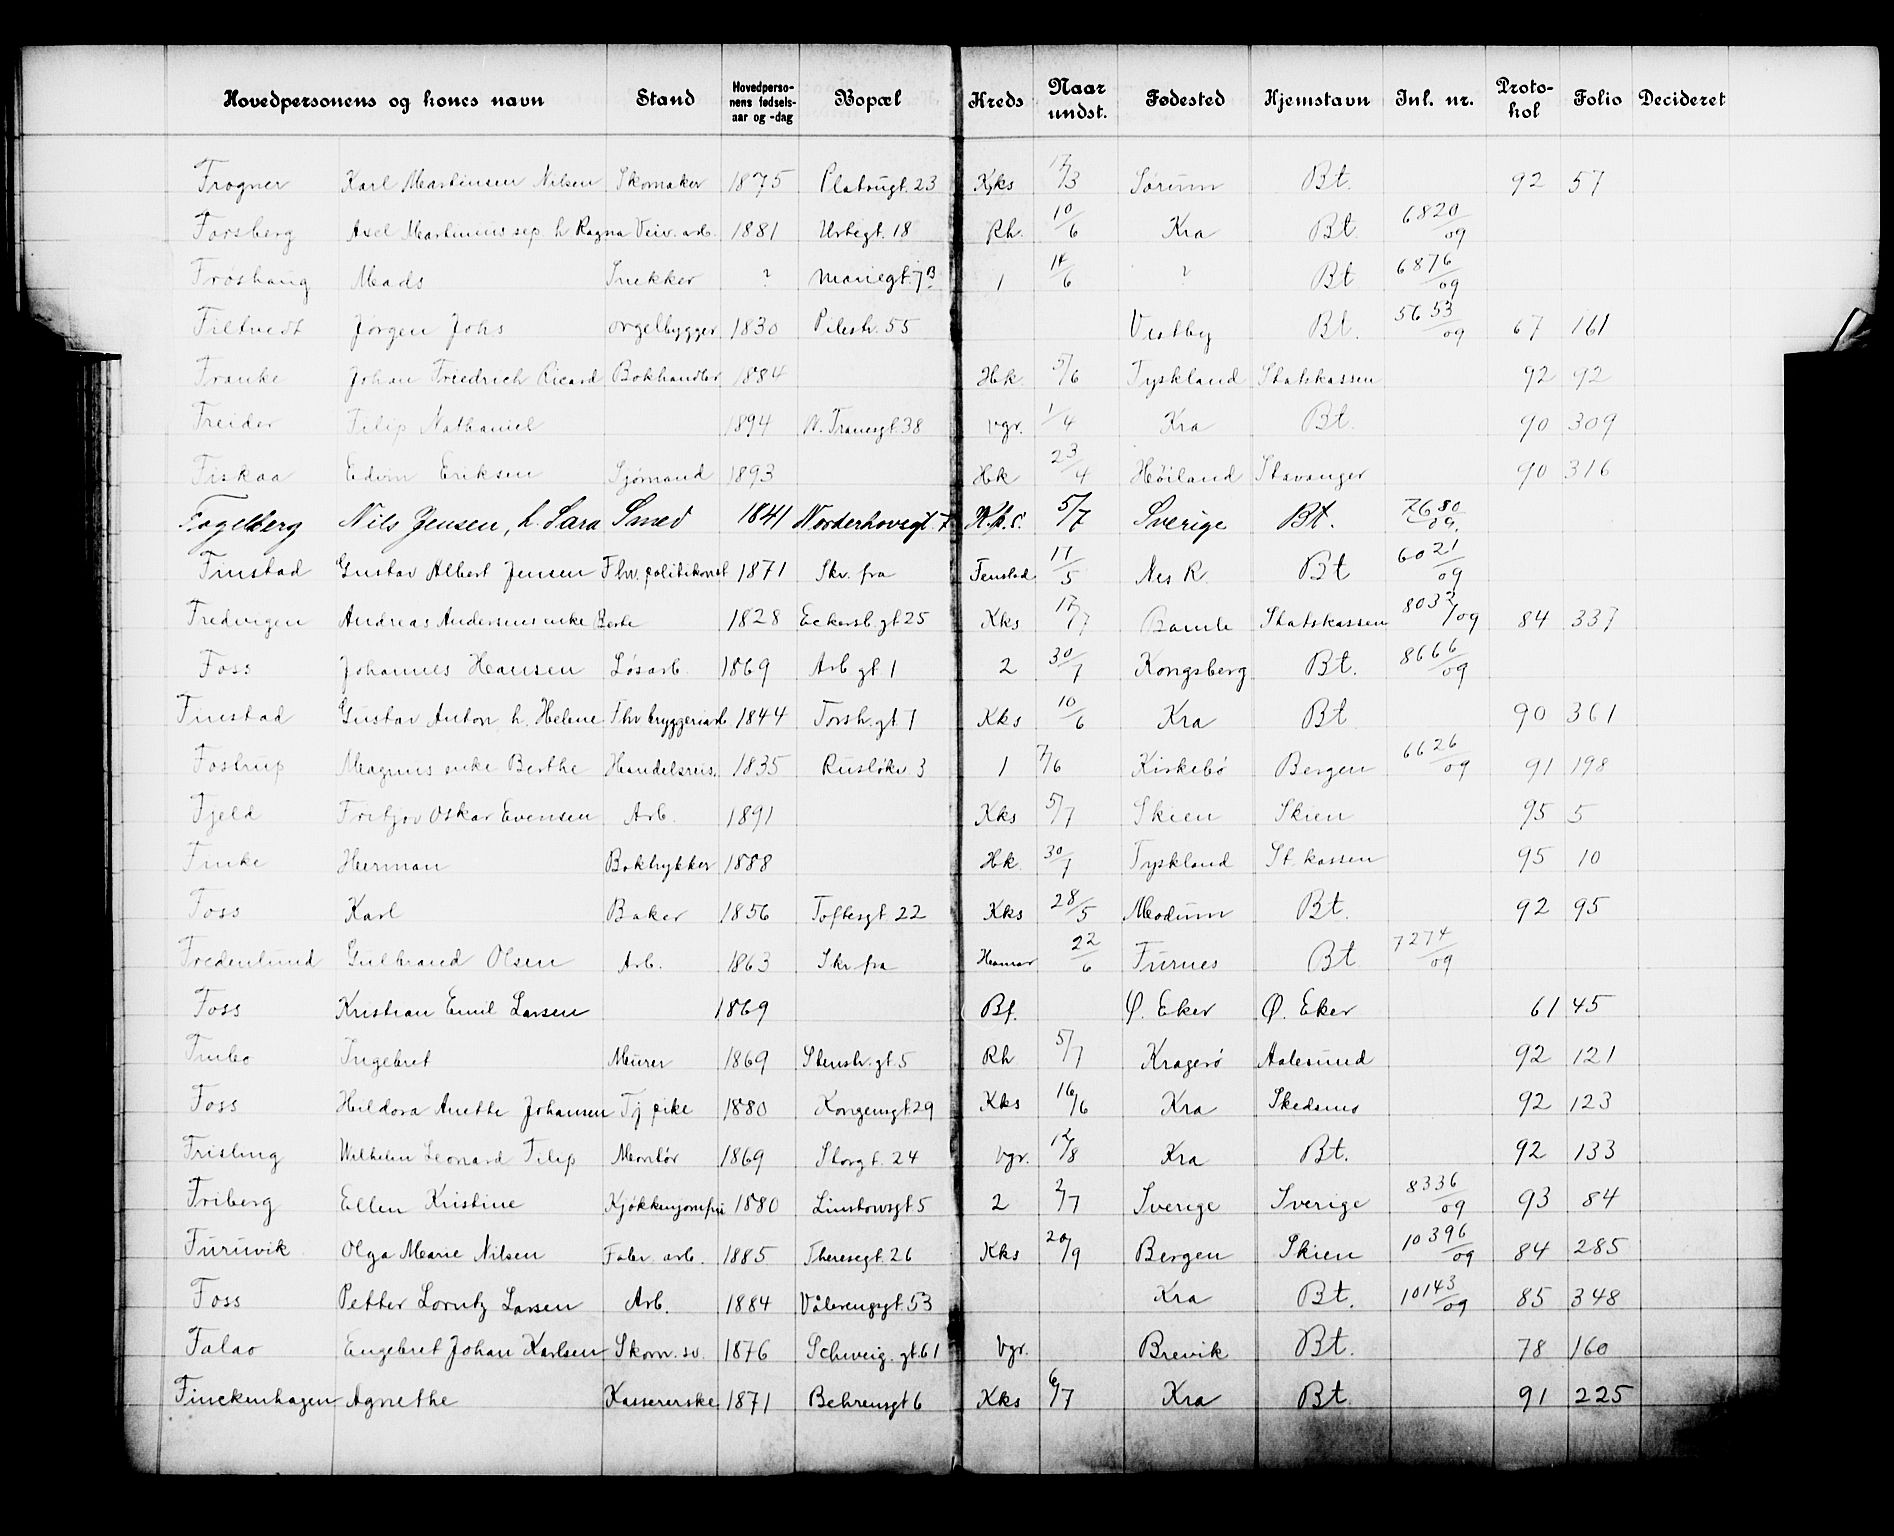 Hovedpersonens og kones navn Stand Hovedperso-nens fødsels-aar og -dag Bopæl Kreds Naar undst. Fødested Hjemstavn Inl. nr. Proto-kol Folio Decideret
Frogner Karl Martinsen Nilsen Skomaker 1875 Platougt. 23 Kks 17/3 Sørum Bt. 92 57
Forsberg Axel Martinius sep. h Ragna Veiv. arb. 1881 Urtegt. 18 Rh. 10/6 Kra Bt. 6820/09
Froshaug Mads Snekker ? Mariegt. 7 B 1 14/6 ? Bt 6876/09
Filtvedt Jørgen Johs orgelbygger 1830 Pilestr. 55 Vestby Bt. 5653/09 67 161
Franke Johan Friedrich Ricard Bokhandler 1884 Hk 5/6 Tyskland Statskassen 92 92
Freider Filip Nathaniel 1894 N. Tranesgt. 38 Vgr. 1/4 Kra Bt. 90 309
Fiskaa Edvin Eriksen Sjømand 1893 Hk 23/4 Høiland Stavanger 90 316
Fagelberg Nils Jensen, h. Sara Smed 1841 Norderhovsgt. 7 K.k.s. 5/7 Sverige Bt. 7680/09.
Finstad Gustav Albert Jensen Fhv. politikonst 1871 Skr. fra Fenstad 11/5 Nes R. Bt 6021/09
Fredvigen Andreas Andersens enke Berte 1828 Eckersb. gt 25 Kks 17/7 Bamle Statskassen 8032/09 84 337
Foss Johannes Hansen Løsarb. 1869 Arb gt. 1 2 30/7 Kongsberg Bt. 8666/09
Finstad Gustav Anton h. Helene Fhv bryggeriarb 1844 Torsh. gt. 7 Kks 10/6 Kra Bt 90 361
Fostrup Magnus enke Berthe Handelsreis. 1835 Rusløkv 3 1 7/6 Kirkebø Bergen 6626/09 91 198
Fjeld Fritjov Oskar Evensen Arb. 1891 Kks 5/7 Skien Skien 95 5
Finke Herman Boktrykker 1888 Hk 30/7 Tyskland St. kassen 95 10
Foss Karl Baker 1856 Toftesgt. 22 Kks 28/5 Modum Bt. 92 95
Fredenlund Gulbrand Olsen Arb. 1863 Skr fra Hamar 22/6 Furnes Bt 7274/09
Foss Kristian Emil Larsen 1869 Bf. Ø. Eker Ø. Eker 61 45
Finbo Ingebret Murer 1869 Stenstr. gt. 5 Rh 5/7 Kragerø Aalesund 92 121
Foss Hildora Anette Johansen Tj pike 1880 Kongensgt 29 Kks 16/6 Kra Skedsmo 92 123
Frisling Wilhelm Leonard Filip Montør 1869 Storgt. 24 Vgr. 12/8 Kra Bt. 92 133
Friberg Ellen Kristine Kjøkkenjomfru 1880 Linstowsgt 5 2 2/7 Sverige Sverige 8336/09 93 84
Furuvik Olga Marie Nilsen Fabr. arb. 1885 Theresegt. 26 Kks 20/9 Bergen Skien 10396/09 84 285
Foss Petter Lorntz Larsen Arb. 1884 Vålerengsgt. 53 Kra Bt. 10143/09 85 348
Falao Engebret Johan Karlsen Skom. sv. 1876 Schweig. gt 61 Vgr. Brevik Bt. 78 160
Finckenhagen Agnethe Kassererske 1871 Behrensgt 6 Kks 6/7 Kra Bt. 91 225